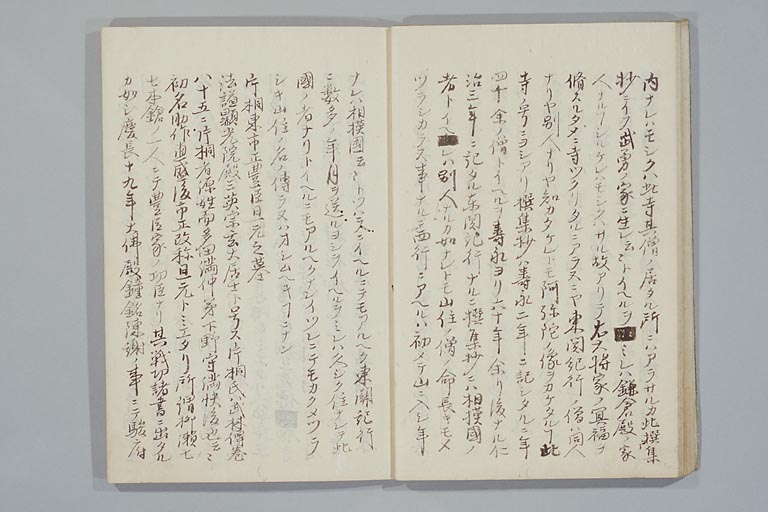 内ナレハモシクハ此寺其僧ノ居タル所ニハアラサルカ此撰集
抄ニイタク武勇ノ家ニ生レ云々トイヘルヲミレハ鎌倉殿ノ家
人ナルヘシケレハモシクハサル故アリテ右大将家ノ冥福ヲ
脩スルタメニ寺ツクリタルニアラスヤ東関紀行ノ僧ト同人
ナリヤ別人ナリヤ知カタケレトモ阿弥陀ノ像ヲカケタルナト此
寺ノ号ニヨシアリ撰集抄ハ寿永二年ニ記シタルニ年
四十余ノ僧トイヘルヲ寿永ヨリ六十年余リ後ナル仁
治三年ニ記タル東関紀行ナルニ撰集抄ニハ相摸国ノ
者トイヘレハ別人ナルカ如ナレトモ山住ノ僧ノ命長キモメ
ツラシカラヌ事ナルニ西行ニアヘルハ初メテ山ニ入シ年
ナレハ相摸国云々トツハスイヘルニテモアルヘク東関紀行
ニ数多ノ年月ヲ送ルヨシヲイヘルヲミレハ久シク住ナレテ此
国ノ者ナリトイヘルニモアルヘクナンイツレニテモカクメツラ
シキ山住ノ名ノ傳ラヌハオシムヘキコニナン
片桐東市正豊臣且元之墓
法謚顕光院殿三英宗玄大居士ト号ス片桐氏ハ武林傳巻
八十五ニ片桐者源姓而多田満仲ノ弟下野守満快後也云々
初名助作直盛後市正改称且元トミエタリ所謂柳瀬七
七本鎗ノ一人ニテ豊臣家ノ功臣ナリ其戦功諸書ニ出タル
カ如シ慶長十九年大佛殿鐘銘陳謝ノ事ニテ駿府